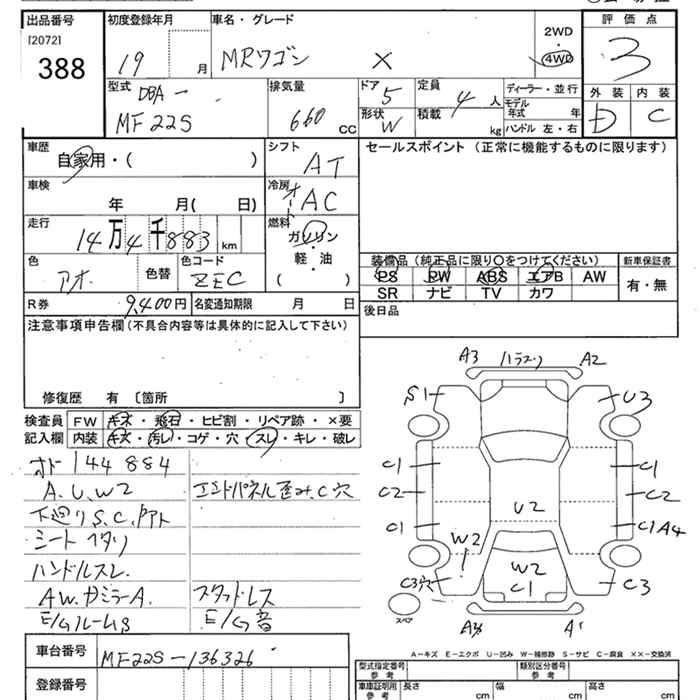 出品番号 初度登録年月 車名・グレード 2WD 4WD 評価点
[2072]
388 19 月 MRワゴン X 3
型式 DBA- 排気量 ドア 5 定員 ディーラー・並行 外装 内装
MF22S 660 CC 形状 W 積載 4人 kg モデル年式 年 D C
ハンドル 左・右
車歴 自家用・( ) シフト AT セールスポイント (正常に機能するものに限ります)
車検 年 月( 日) 冷房 オート AC
走行 14万4千883 km 燃料 ガソリン・軽・油 ( )
色 アオ 色替 色コード ZEC
装備品 (純正品に限り○をつけてください) 新車保証書
PS PW ABS エアB AW 有・無
SR ナビ TV カワ
R券 9,400円 名変通知期限 月 日 後日品
注意事項申告欄 (不具合内容等は具体的に記入して下さい)
修復歴 有 〔箇所 〕
検査員記入欄 FW キズ・飛石・ヒビ割・リペア跡・×要
内装 キズ・汚レ・コゲ・穴・スレ・キレ・破レ
オド 144884
A.U.W2 エンドパネル歪み.C穴
下廻りS.C.
シートヘタリ
ハンドルスレ.
AW.ガミラーA. スタッドレス
E/Gルーム E/G音
車台番号 MF22S-136326
登録番号
A3 A2
S1 U3
C1 C1
C2 C2
C1 U2 C1A4
W2 W2
C3穴 C1 C3
スペア
A1
A-キズ E-エクボ U-凹み W-補修跡 S-サビ C-腐食 ××-交換済
型式指定番号 参考 類別区分番号 参考
車庫証明用 参考 長さ cm 幅 cm 高さ cm